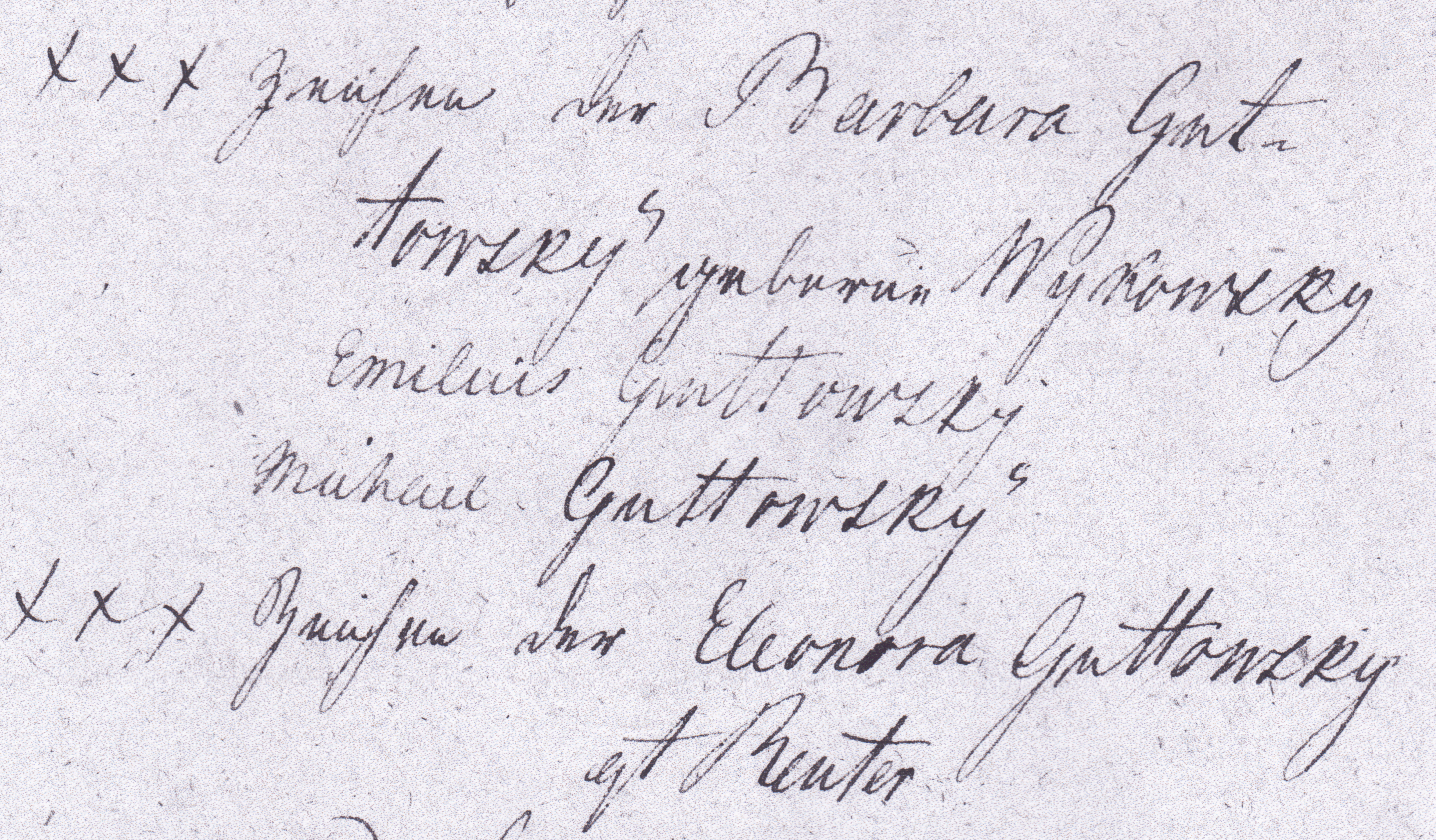 + + + Zeichen der Barbara Gut-
towsky geborne Wykowsky
Emilius Guttowsky
Michael Guttowsky
+ + + Zeichen der Eleonora Guttowsky
gt Reuter